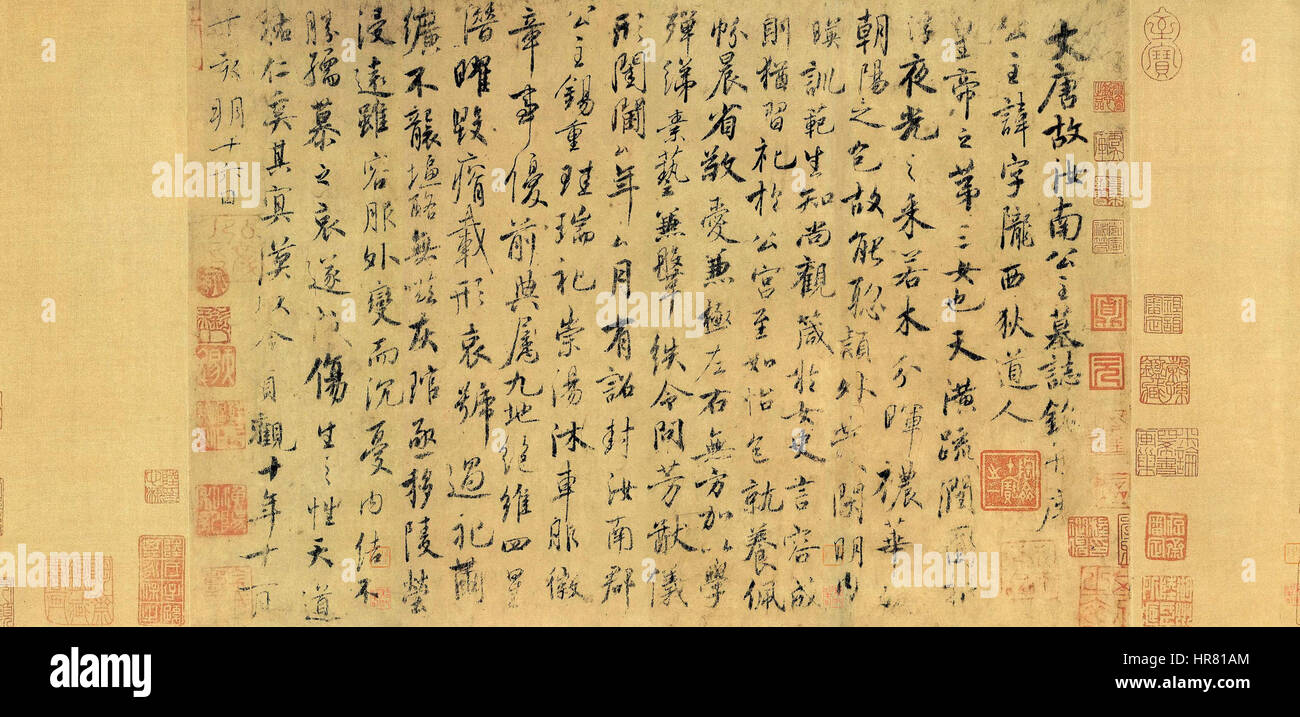 大唐故汝南公主墓誌銘并序
公主諱字隴西狄道人
皇帝之第三女也天潢疏潤圓折
浮夜光之采若木分暉穠華照
朝陽之色故能聡穎外發閑明內
暎訓範生知尚觀箴於女史言容成
則猶習礼於公宮至如怡色就養佩
帉晨省敬愛兼極左右無方加以學
殫綈素藝兼鞶紩令問芳猷儀
形閨閫厶年厶月有詔封汝南郡
公主錫重珪瑞礼崇湯沐車服徽
章事優前典屬九地絕維四星
潛曜毀瘠載形哀號過礼繭
纊不襲塩酪無嗞灰琯亟移陵塋
浸遠雖容服外變而沉憂內結不
勝孺慕之哀遂成傷生之性天道
祐仁奚其冥漠以今貞觀十年十一月
丁亥朔十六日
a
alamy stock photo
HR81AM
www.alamy.com